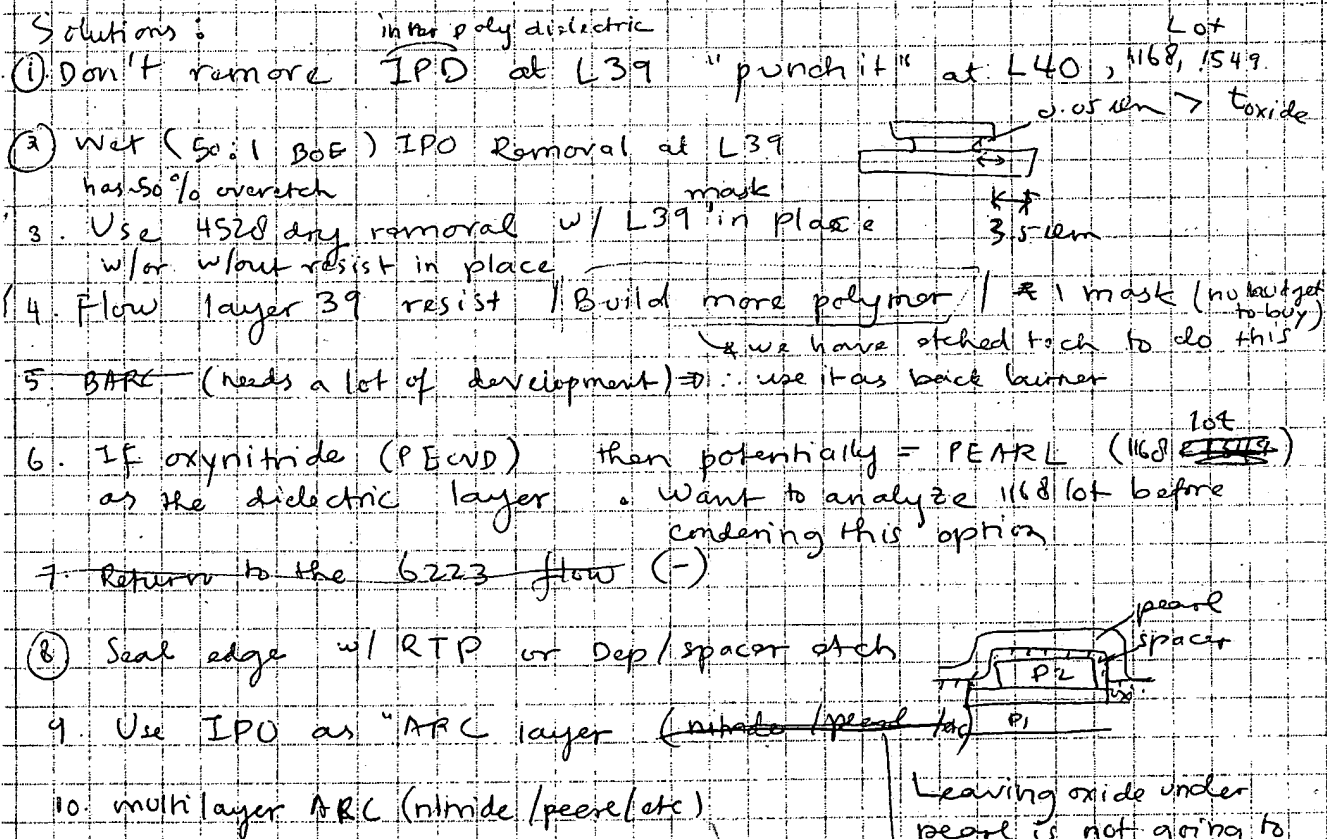 Solutions :
inter poly dielectric
Lot
① Don't remove IPD at L39 "punch it" at L40, 1168, 1549.
0.05 um > toxide
② Wet (50:1 BOE) IPO Removal at L39
has 50% overetch
mask
3. Use 4528 dry removal w/ L39 in place
3.5 um
w/or w/out resist in place
4. Flow layer 39 resist / Build more polymer / * 1 mask (no budget to buy)
* we have etched tech to do this
5. BARC (needs a lot of development) ⇒ ∴ use it as back burner
lot
6. If oxynitride (PECVD) then potentially = PEARL (1168)
as the dielectric layer . Want to analyze 1168 lot before
condering this option
7. Return to the 6223 flow (-)
pearl
spacer
⑧ Seal edge w/ RTP or Dep/spacer etch
P2
P1
9. Use IPO as "ARC layer (nitride /pearl /etc)
10. multilayer ARC (nitride /peere/etc)
Leaving oxide under
pearl is not going to